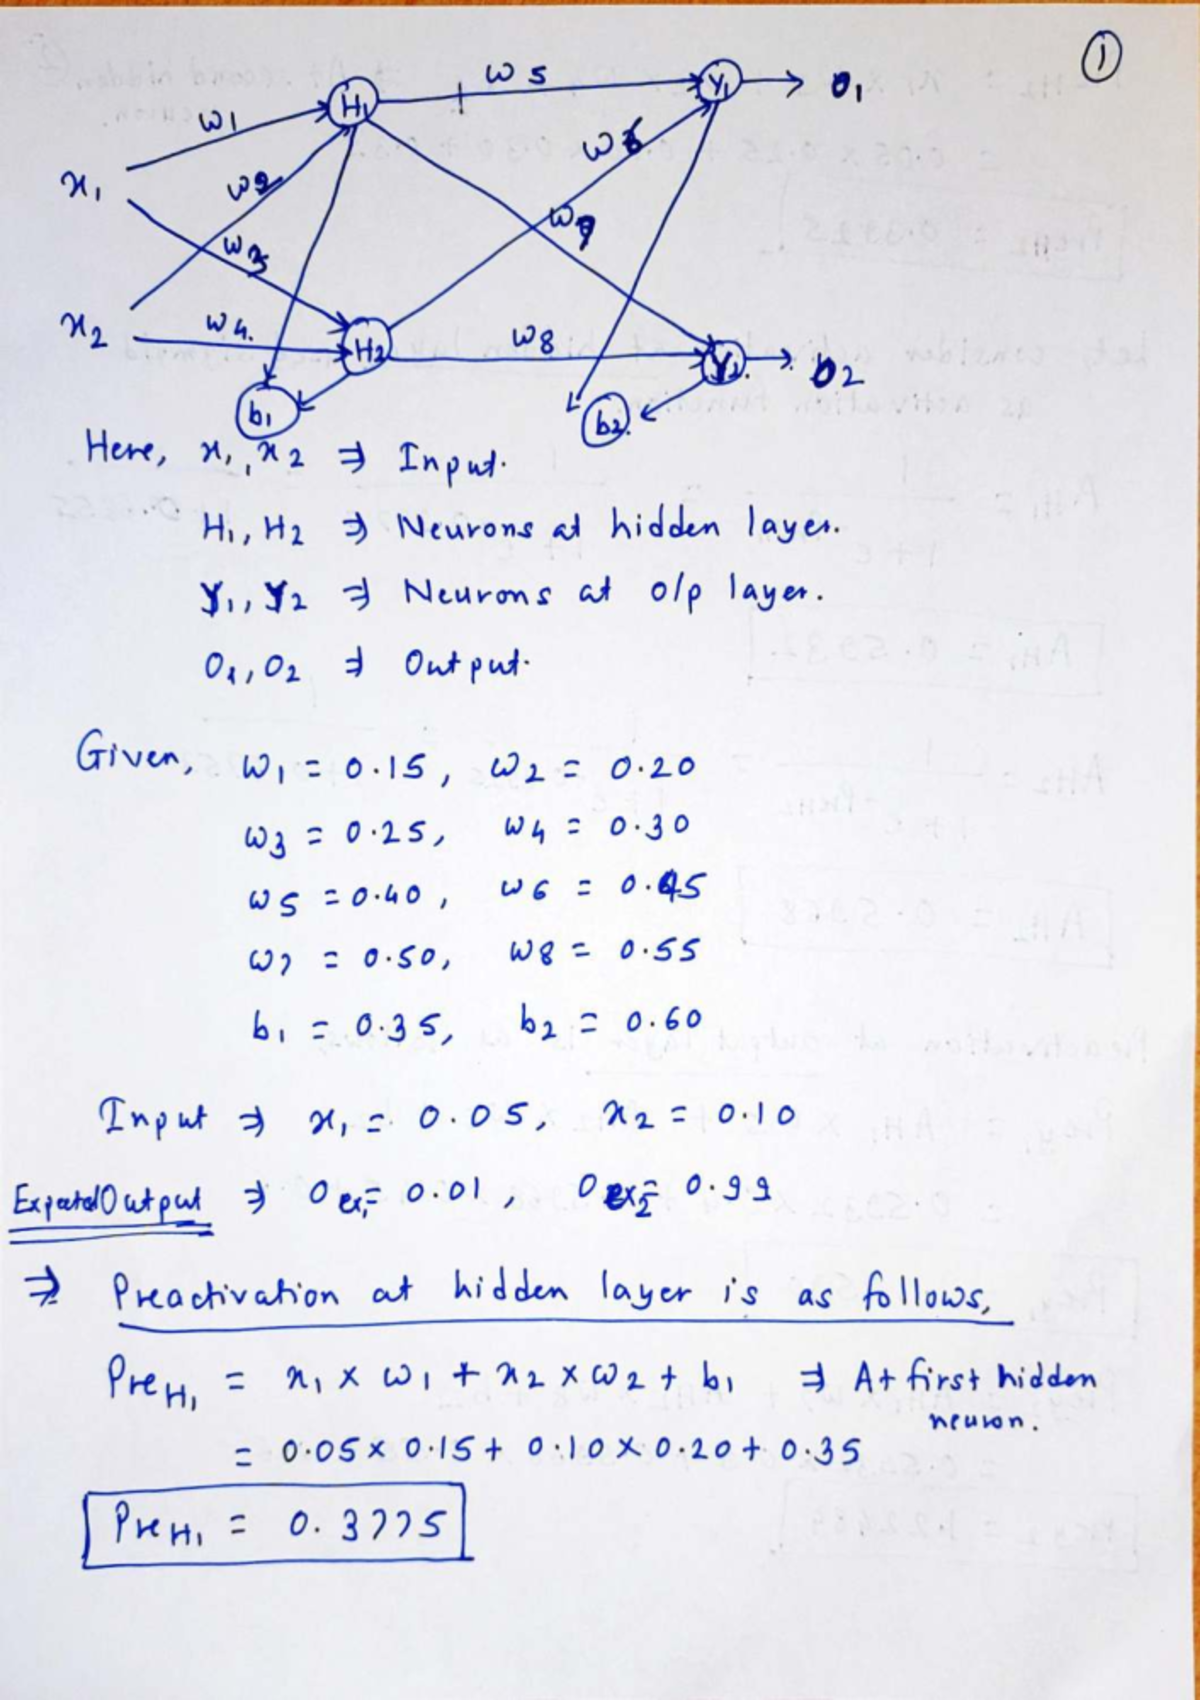 ①
w5
H1
Y1
O1
w1
w6
x1
w2
w7
w3
x2
w4.
H2
w8
Y2
O2
b1
b2.
Here, x1, x2 ⇒ Input.
H1, H2 ⇒ Neurons at hidden layer.
Y1, Y2 ⇒ Neurons at o/p layer.
O1, O2 ⇒ Output.
Given, w1 = 0.15, w2 = 0.20
w3 = 0.25, w4 = 0.30
w5 = 0.40, w6 = 0.45
w7 = 0.50, w8 = 0.55
b1 = 0.35, b2 = 0.60
Input ⇒ x1 = 0.05, x2 = 0.10
Expected Output ⇒ Oex1 = 0.01, Oex2 = 0.99
⇒ Preactivation at hidden layer is as follows,
PreH1 = x1 × w1 + x2 × w2 + b1 ⇒ At first hidden
neuron.
= 0.05 × 0.15 + 0.10 × 0.20 + 0.35
PreH1 = 0.3775